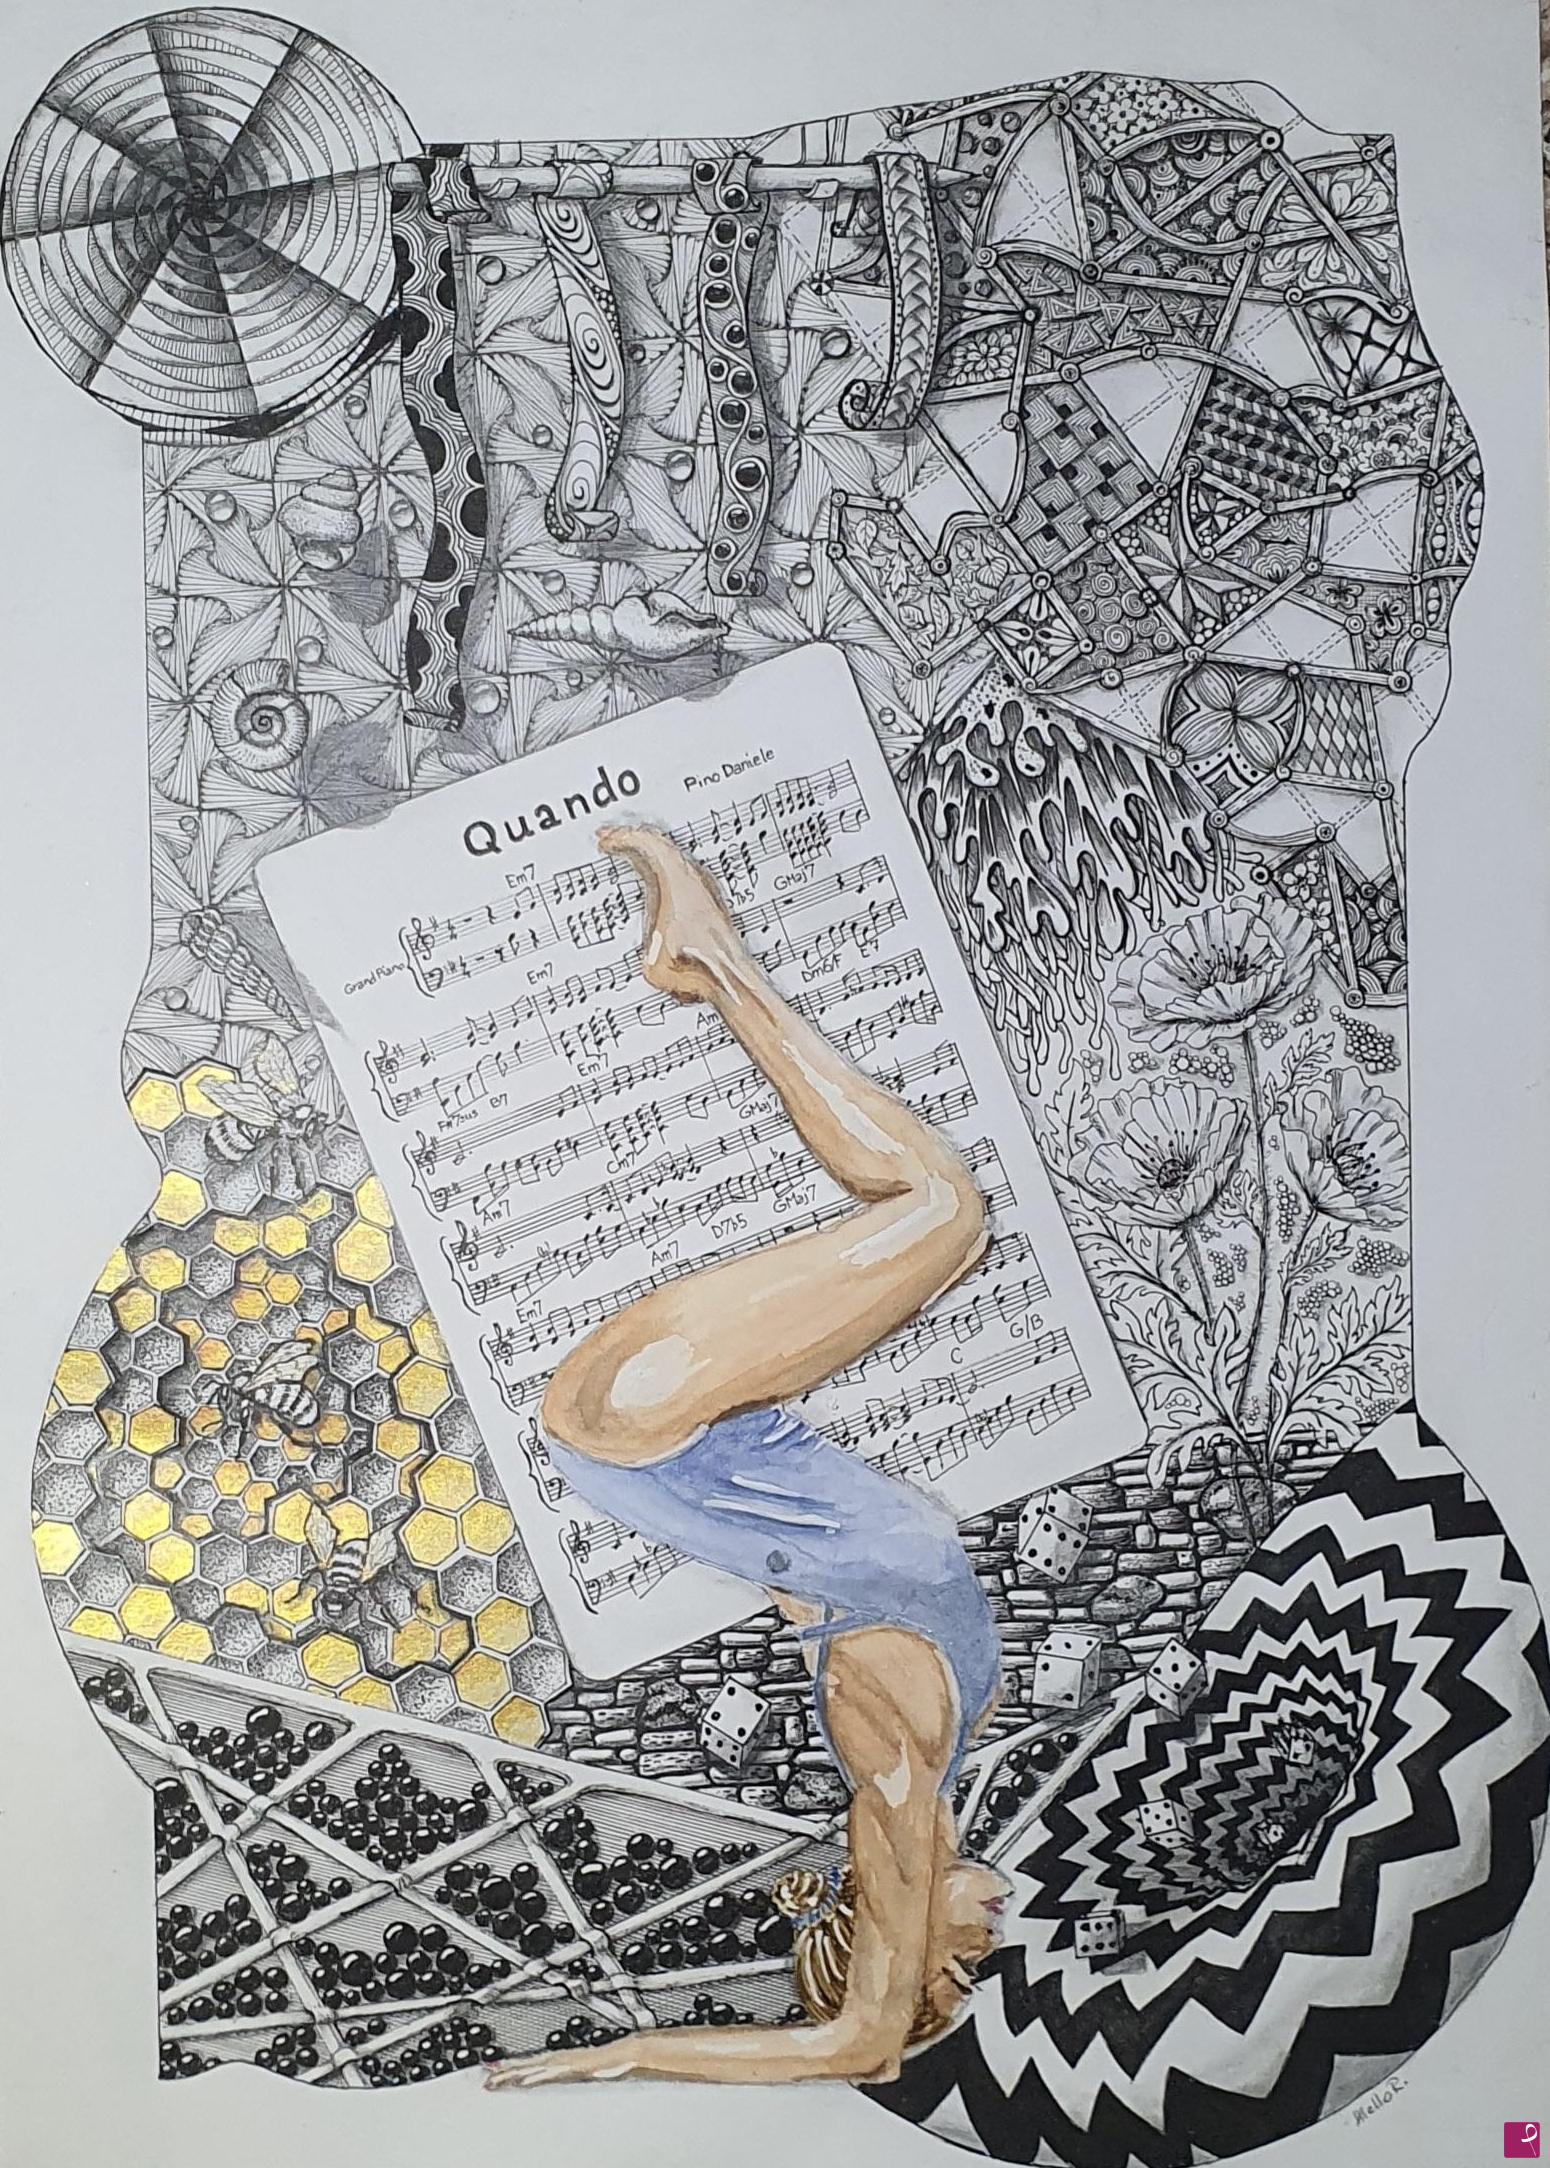 Quando
Pino Daniele
Em7
GMaj7
Grand Piano
Em7
Dm6/F E7
Am
Em7
F#7sus B7
GMaj7
Cm7
Am7
D7b5 GMaj7
Am7
Em7
G/B
C